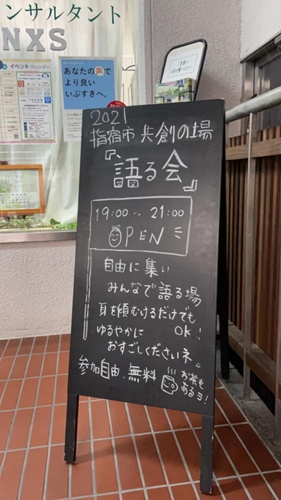 ンサルタント
NXS
イベント
あなたの声で
より良い
いぶすきへ。
2021
指宿市 共創の場
『語る会』
19:00〜21:00
OPEN
自由に集い
みんなで語る場
耳を傾むけるだけでも
OK!
ゆるやかに
おすごしくださいネ。
参加自由.無料
お茶も
あるヨ!